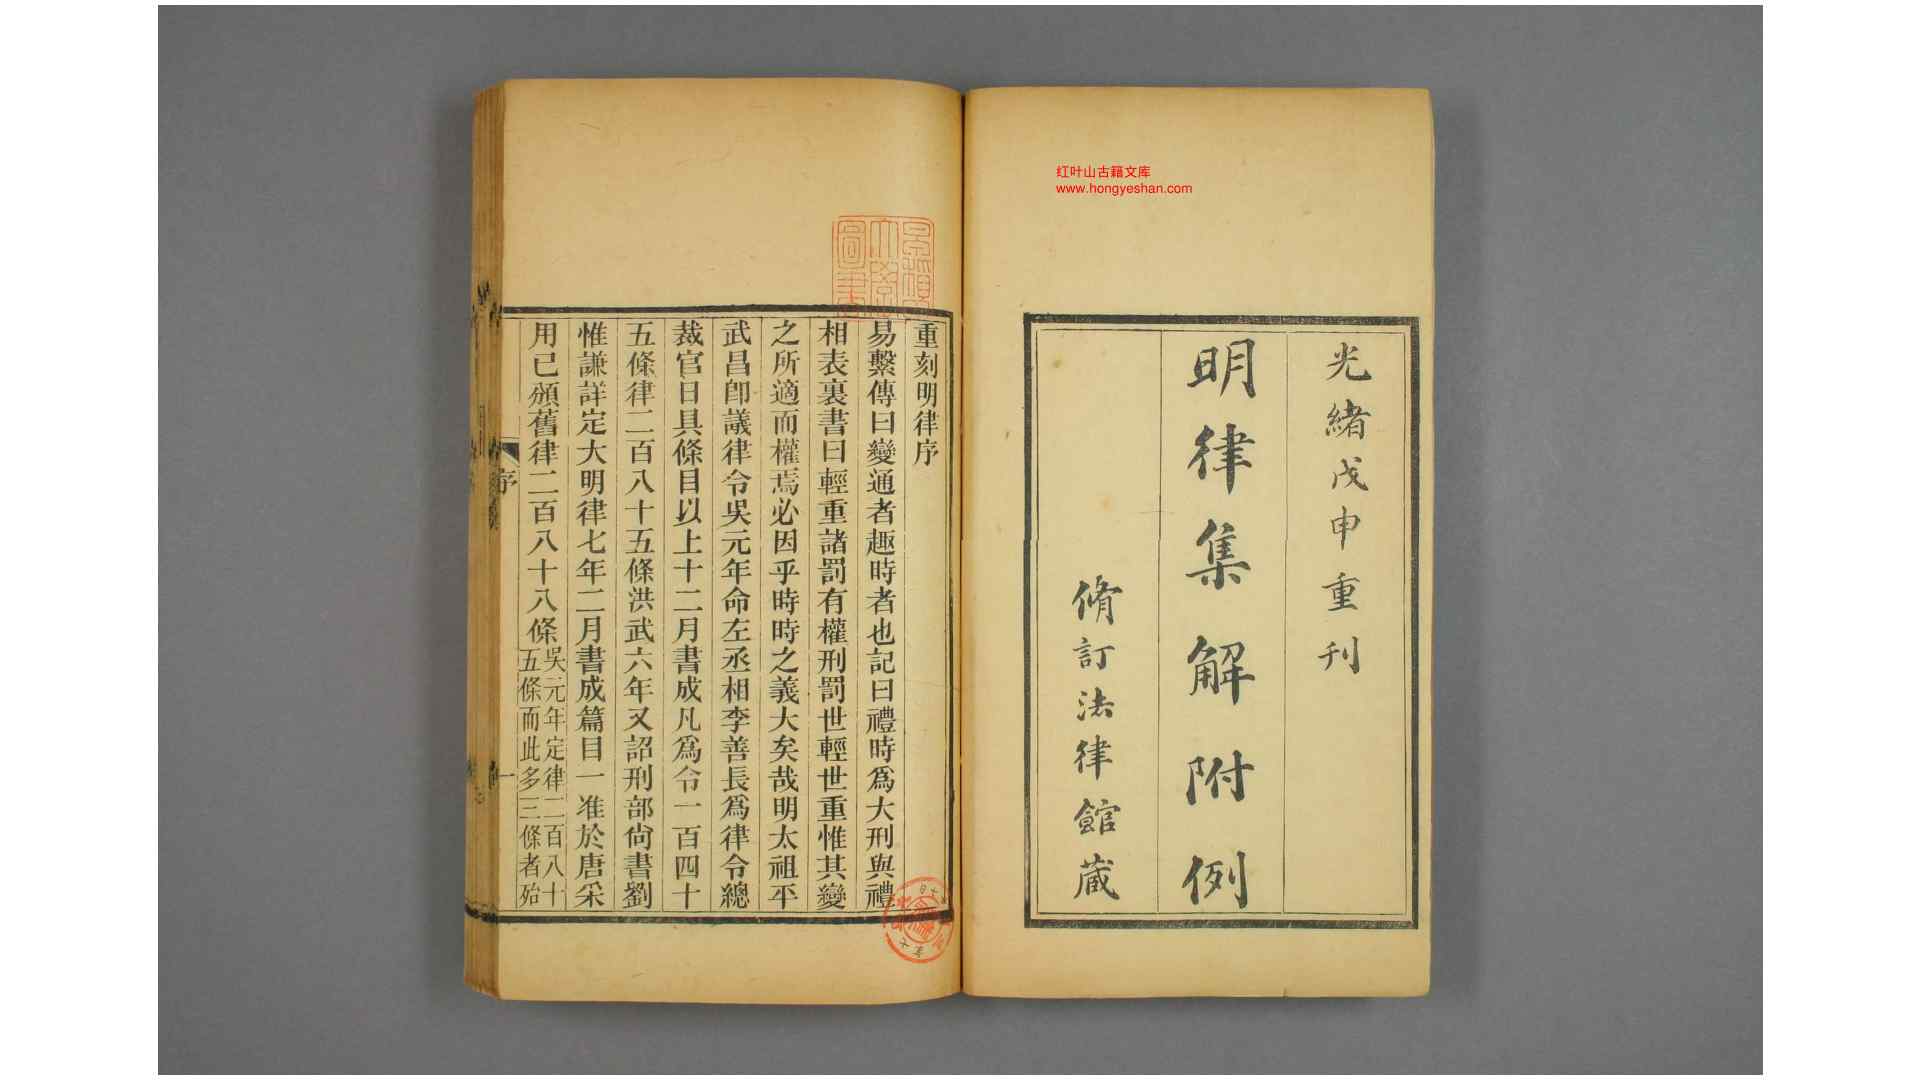 红叶山古籍文库
www.hongyeshan.com
光緒戊申重刊
明律集解附例
脩訂法律館蔵
重刻明律序
易繫傳曰變通者趣時者也記曰禮時爲大刑與禮
相表裏書曰輕重諸罰有權刑罰世輕世重惟其變
之所適而權焉必因乎時時之義大矣哉明太祖平
武昌卽議律令吳元年命左丞相李善長爲律令總
裁官日具條目以上十二月書成凡爲令一百四十
五條律二百八十五條洪武六年又詔刑部尙書劉
惟謙詳定大明律七年二月書成篇目一准於唐采
用已頒舊律二百八十八條
吳元年定律二百八十
五條而此多三條者殆
序
一